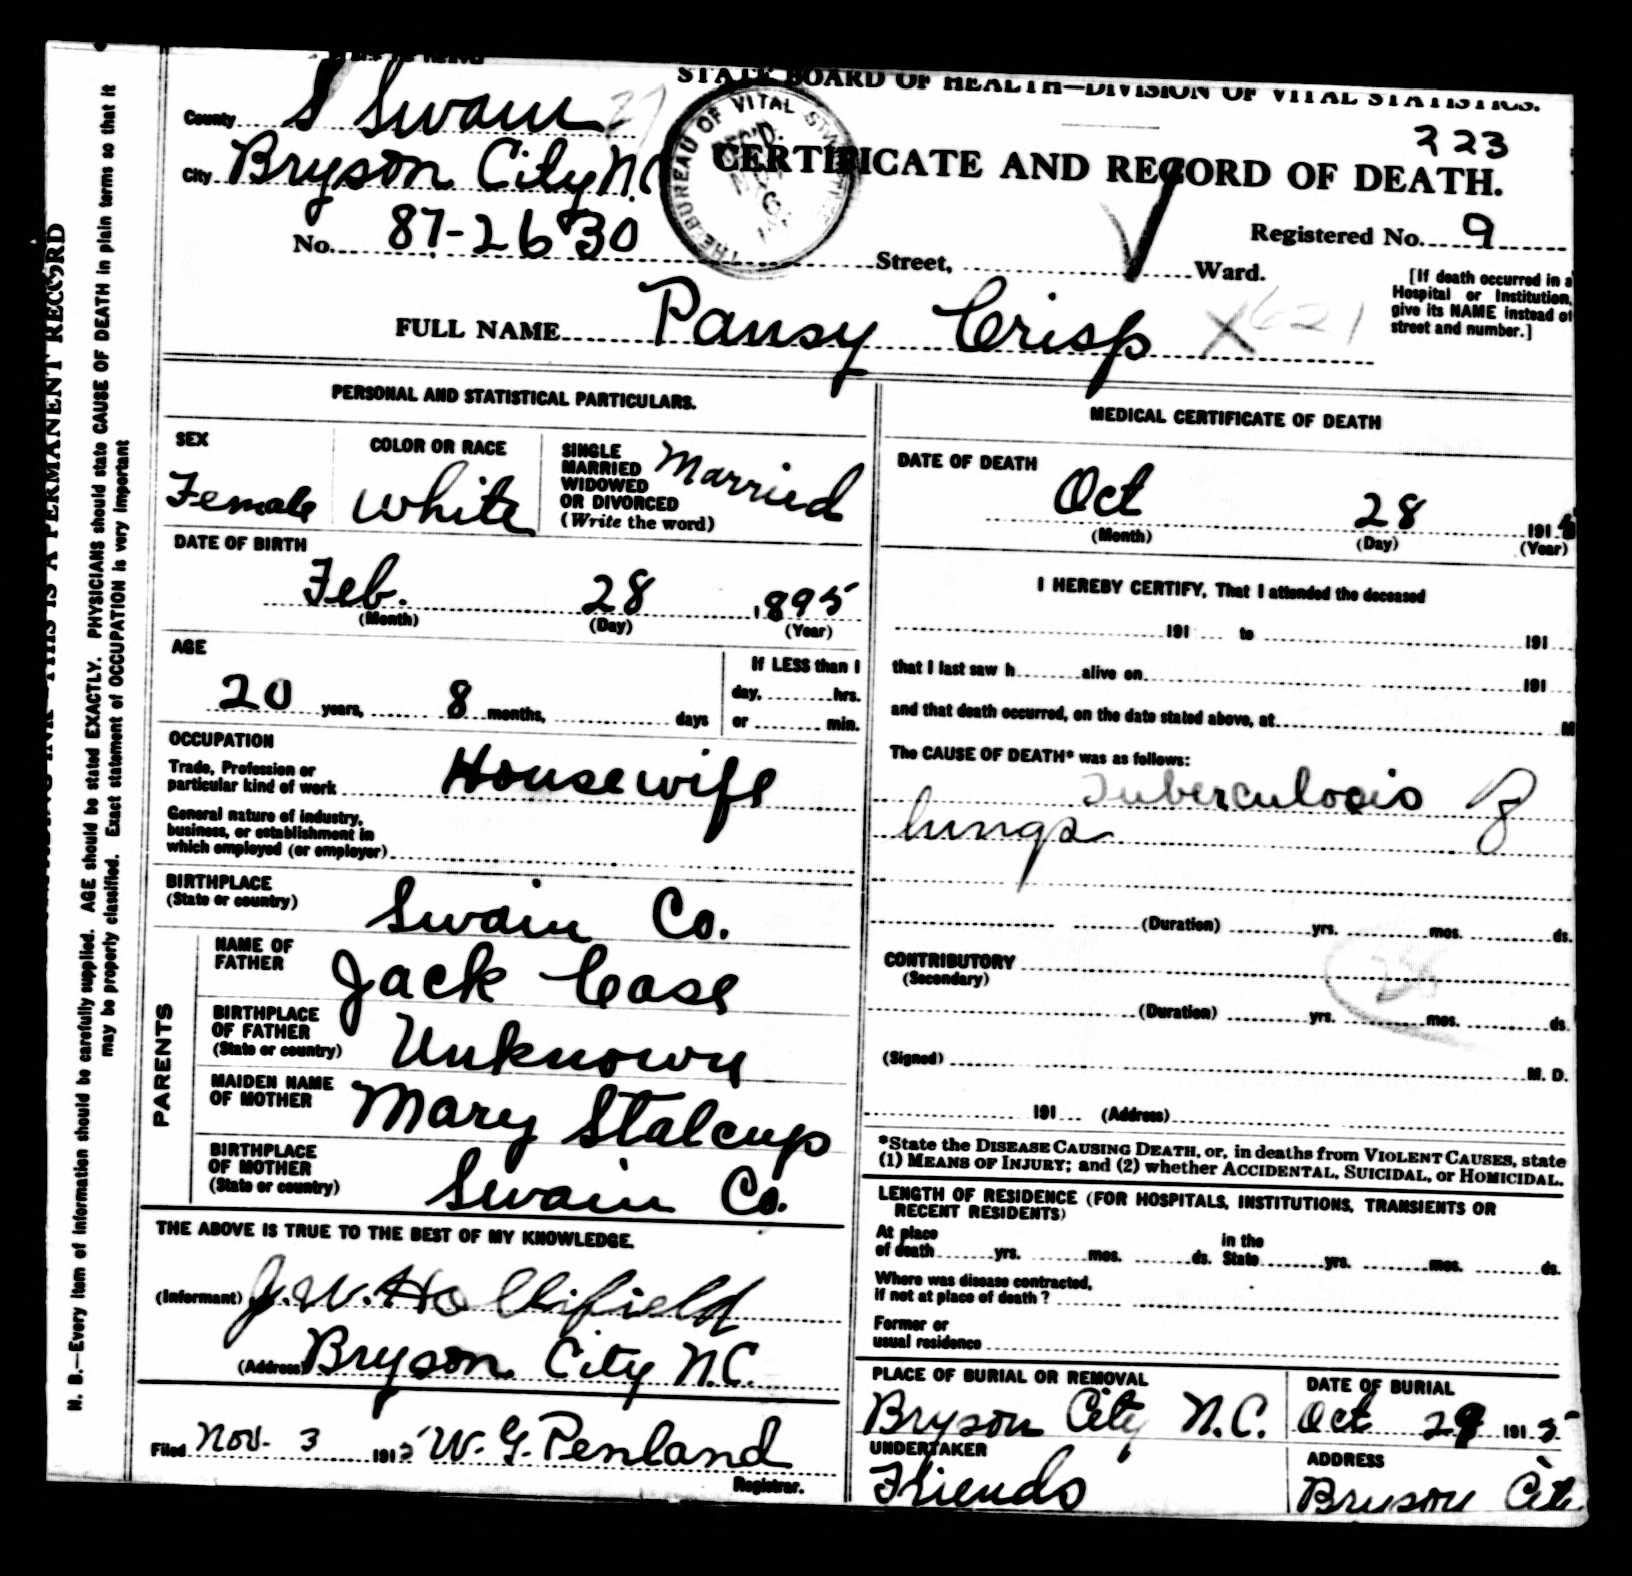 STATE BOARD OF HEALTH—DIVISION OF VITAL STATISTICS.
County S Swain
223
CERTIFICATE AND RECORD OF DEATH.
City Bryson City N.C
THE BUREAU OF VITAL
REC'D.
6
Registered No. 9
No. 87-2630 Street, Ward.
[If death occurred in a
Hospital or Institution,
give its NAME instead of
street and number.]
FULL NAME Pansy Crisp X 621
PERSONAL AND STATISTICAL PARTICULARS.
SEX
Female
COLOR OR RACE
White
SINGLE
MARRIED
WIDOWED
OR DIVORCED
(Write the word)
Married
DATE OF BIRTH
Feb. 28 1895
(Month) (Day) (Year)
AGE
20 years, 8 months, days
If LESS than 1
day, hrs.
or min.
OCCUPATION
Trade, Profession or
particular kind of work Housewife
General nature of industry,
business, or establishment in
which employed (or employer)
BIRTHPLACE
(State or country) Swain Co.
PARENTS
NAME OF
FATHER Jack Case
BIRTHPLACE
OF FATHER
(State or country) Unknown
MAIDEN NAME
OF MOTHER Mary Stalcup
BIRTHPLACE
OF MOTHER
(State or country) Swain Co.
THE ABOVE IS TRUE TO THE BEST OF MY KNOWLEDGE.
(Informant) J. W. Hollifield
(Address) Bryson City N.C.
Filed Nov. 3 1915 W. G. Penland
Registrar.
MEDICAL CERTIFICATE OF DEATH
DATE OF DEATH
Oct 28 1915
(Month) (Day) (Year)
I HEREBY CERTIFY, That I attended the deceased
191 to 191
that I last saw h alive on 191
and that death occurred, on the date stated above, at M
The CAUSE OF DEATH* was as follows:
Tuberculosis of
lungs
(Duration) yrs. mos. ds.
CONTRIBUTORY
(Secondary)
(Duration) yrs. mos. ds.
(Signed) M. D.
191 (Address)
*State the DISEASE CAUSING DEATH, or, in deaths from VIOLENT CAUSES, state
(1) MEANS OF INJURY; and (2) whether ACCIDENTAL, SUICIDAL, or HOMICIDAL.
LENGTH OF RESIDENCE (FOR HOSPITALS, INSTITUTIONS, TRANSIENTS OR
RECENT RESIDENTS)
At place
of death yrs. mos. ds.
in the
State yrs. mos. ds.
Where was disease contracted,
if not at place of death?
Former or
usual residence
PLACE OF BURIAL OR REMOVAL
Bryson City N.C.
DATE OF BURIAL
Oct 29 1915
UNDERTAKER
Friends
ADDRESS
Bryson Cit
THIS IS A PERMANENT RECORD
N. B.—Every item of information should be carefully supplied. AGE should be stated EXACTLY. PHYSICIANS should state CAUSE OF DEATH in plain terms so that it
may be properly classified. Exact statement of OCCUPATION is very important